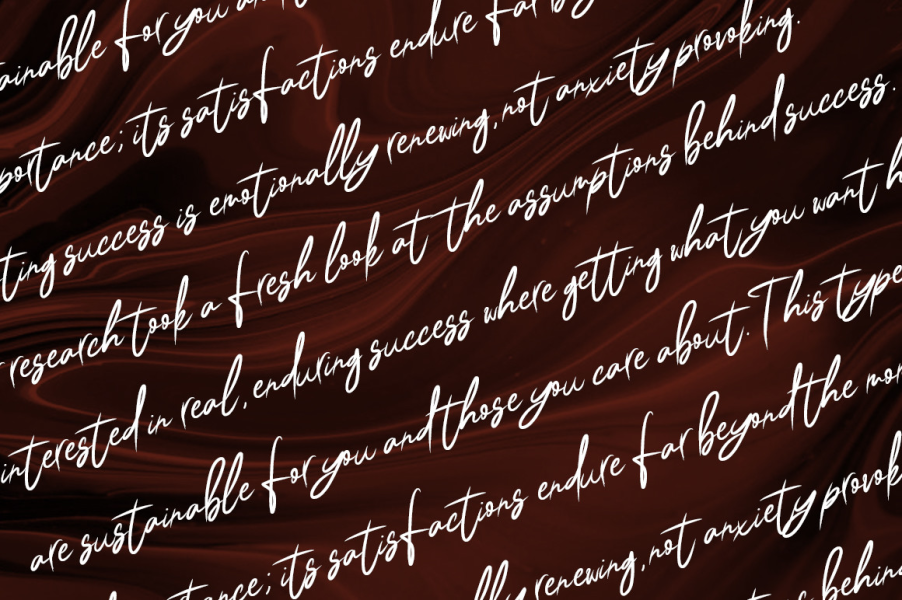 ainable for you and
portance; its satisfactions endure far by
ting success is emotionally renewing, not anxiety provoking.
research took a fresh look at the assumptions behind success.
interested in real, enduring success where getting what you want h
are sustainable for you and those you care about. This type
tance; its satisfactions endure far beyond the mo
lly renewing, not anxiety provok
s behin